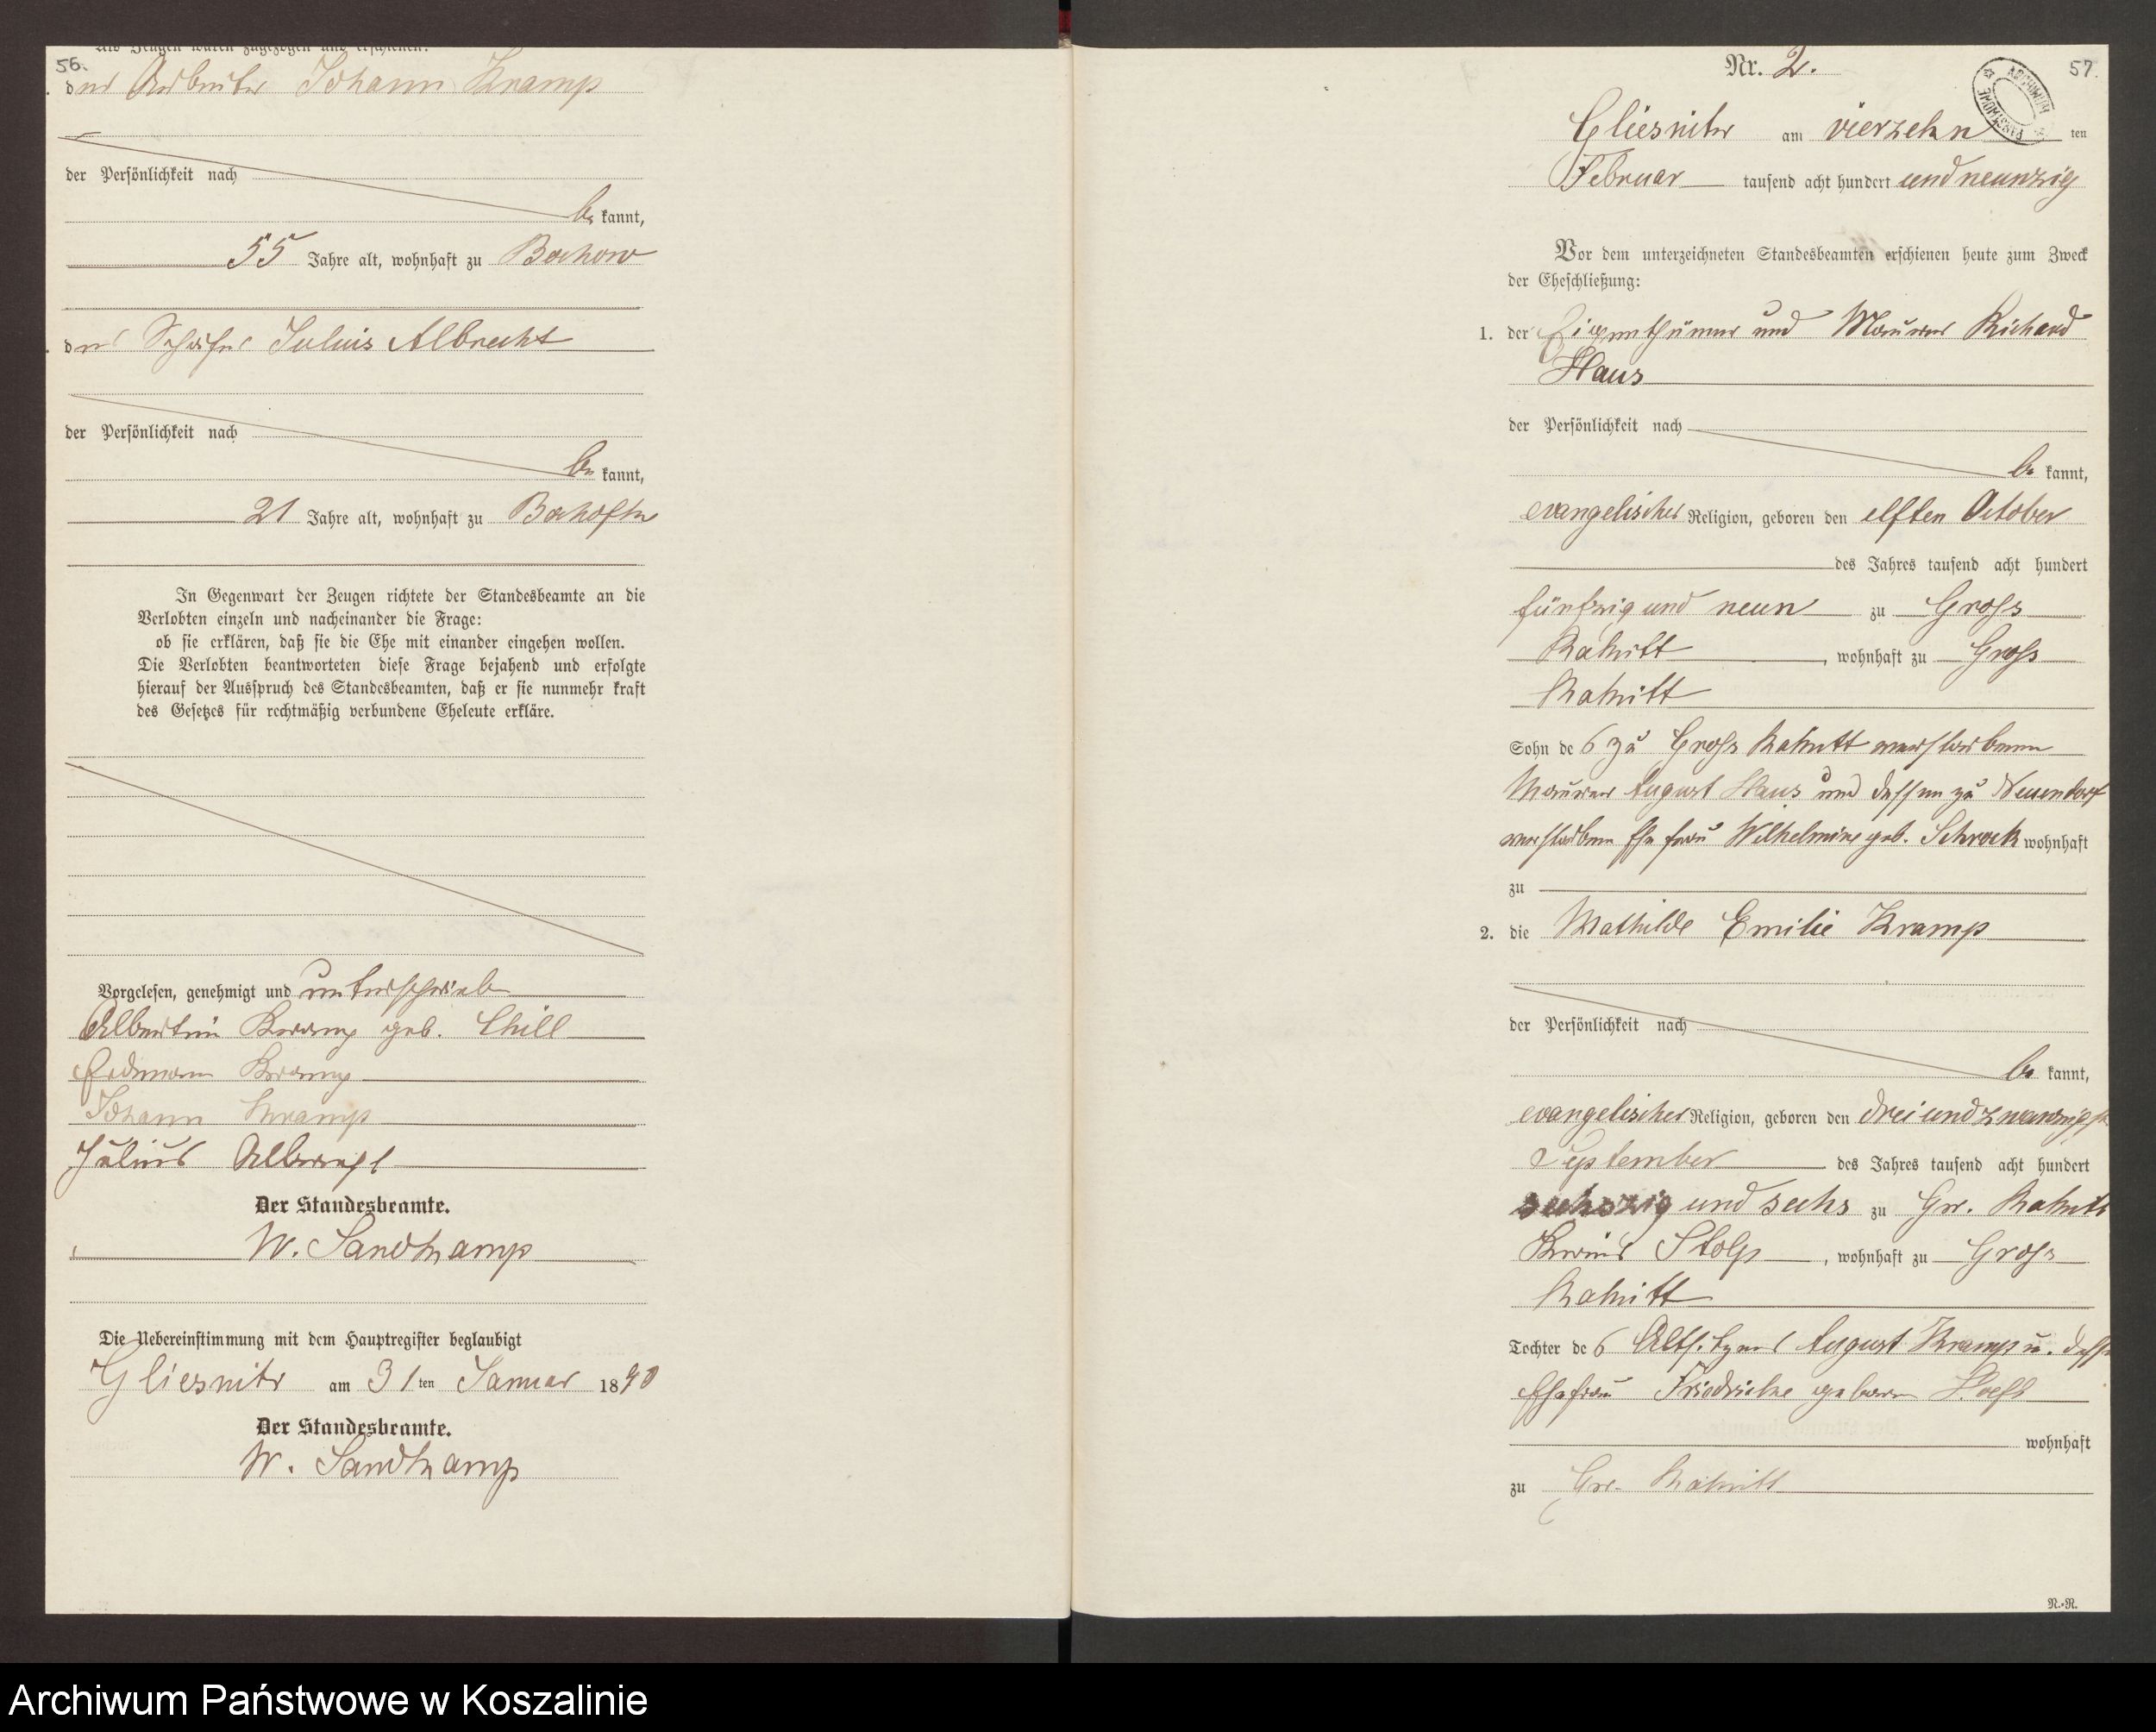 56.
Als Zeugen waren zugezogen und erschienen:
der Arbeiter Johann Kramp
der Persönlichkeit nach
be kannt,
55 Jahre alt, wohnhaft zu
der Schäfer Julius Albrecht
der Persönlichkeit nach
be kannt,
21 Jahre alt, wohnhaft zu
In Gegenwart der Zeugen richtete der Standesbeamte an die
Verlobten einzeln und nacheinander die Frage:
ob sie erklären, daß sie die Ehe mit einander eingehen wollen.
Die Verlobten beantworteten diese Frage bejahend und erfolgte
hierauf der Ausspruch des Standesbeamten, daß er sie nunmehr kraft
des Gesetzes für rechtmäßig verbundene Eheleute erkläre.
Vorgelesen, genehmigt und unterschrieben
Kramp geb. Chill
Erdmann Kramp
Johann Kramp
Julius Albrecht
Der Standesbeamte.
W. Sandkamp
Die Uebereinstimmung mit dem Hauptregister beglaubigt
Gliesnitz am 31 ten Januar 1890
Der Standesbeamte.
W. Sandkamp
Nr. 2.
57.
Gliesnitz am vierzehn ten
Februar tausend acht hundert und neunzig
Vor dem unterzeichneten Standesbeamten erschienen heute zum Zweck
der Eheschließung:
1. der Eigenthümer und Maurer Richard
Haus
der Persönlichkeit nach
be kannt,
evangelischer Religion, geboren den elften October
des Jahres tausend acht hundert
fünfzig und neun zu Gross
Rakitt, wohnhaft zu Gross
Rakitt
Sohn des zu Gross Rakitt verstorbenen
Maurer August Haus und dessen zu Neuendorf
verstorbenen Ehefrau Wilhelmine geb. Schrock wohnhaft
zu
2. die Mathilde Emilie Kramp
der Persönlichkeit nach
be kannt,
evangelischer Religion, geboren den dreiundzwanzigsten
September des Jahres tausend acht hundert
sechszig und sechs zu Gr. Rakitt
Kreis Stolp, wohnhaft zu Gross
Rakitt
Tochter des Altsitzers August Kramp u. dessen
Ehefrau Friedricke geboren
wohnhaft
zu Gr. Rakitt
N.-R.
Archiwum Państwowe w Koszalinie